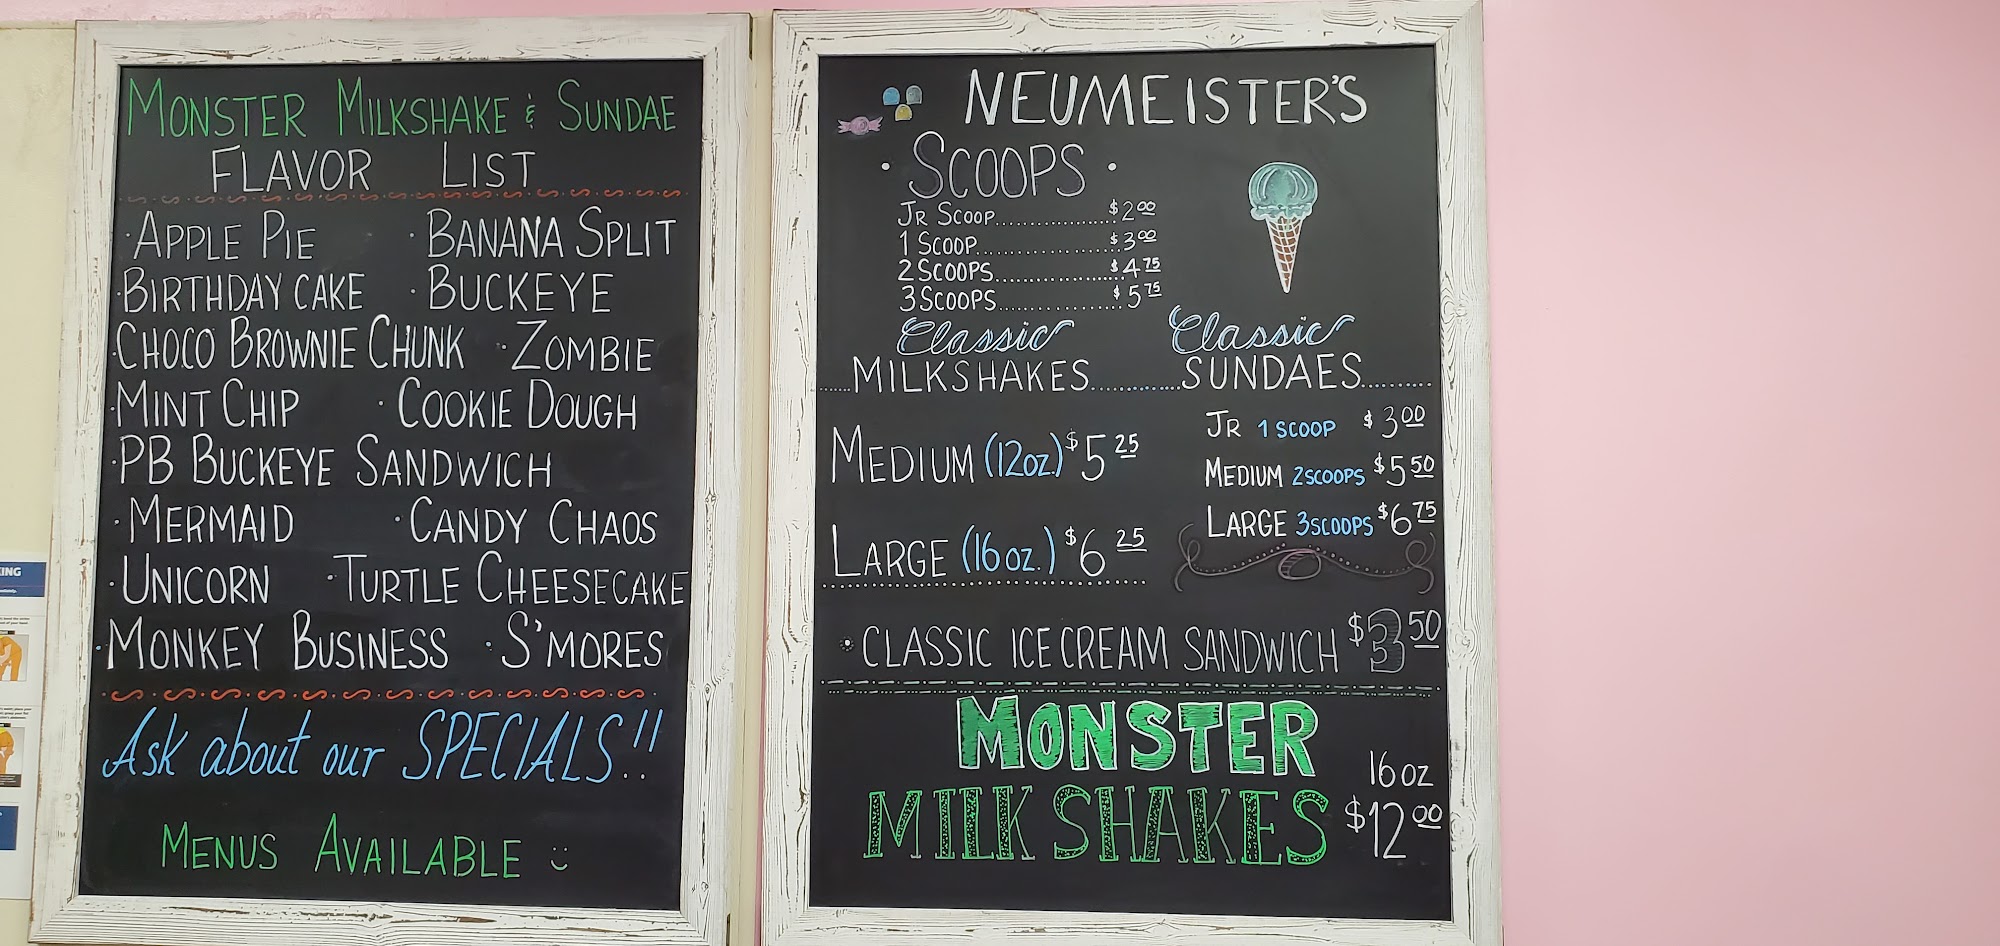 MONSTER MILKSHAKE & SUNDAE
FLAVOR LIST
· APPLE PIE · BANANA SPLIT
· BIRTHDAY CAKE · BUCKEYE
· CHOCO BROWNIE CHUNK · ZOMBIE
· MINT CHIP · COOKIE DOUGH
· PB BUCKEYE SANDWICH
· MERMAID · CANDY CHAOS
· UNICORN · TURTLE CHEESECAKE
· MONKEY BUSINESS · S'MORES
Ask about our SPECIALS!!
MENUS AVAILABLE
NEUMEISTER'S
· SCOOPS ·
JR SCOOP.......... $2.00
1 SCOOP.......... $3.00
2 SCOOPS.......... $4.75
3 SCOOPS.......... $5.75
Classic
MILKSHAKES
MEDIUM (12oz.) $5.25
LARGE (16oz.) $6.25
Classic
SUNDAES
JR 1 SCOOP $3.00
MEDIUM 2 SCOOPS $5.50
LARGE 3 SCOOPS $6.75
· CLASSIC ICE CREAM SANDWICH $3.50
MONSTER
MILKSHAKES
16 oz
$12.00